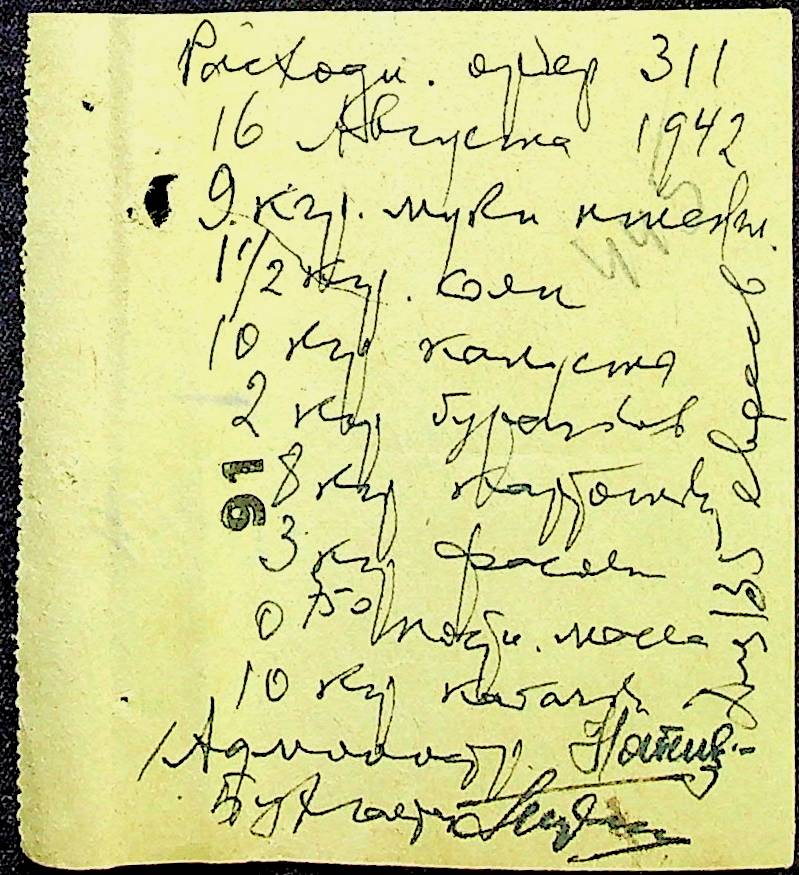 Расходн. ордер 311
16 Августа 1942
9 кгр. муки пшенич.
1 1/2 кгр. соли
10 кгр капуста
2 кгр бураков
8 кгр картошки
3 кгр фасоли
0 750 масла
10 кгр кабачки
Администр.
Бухгалтер
91